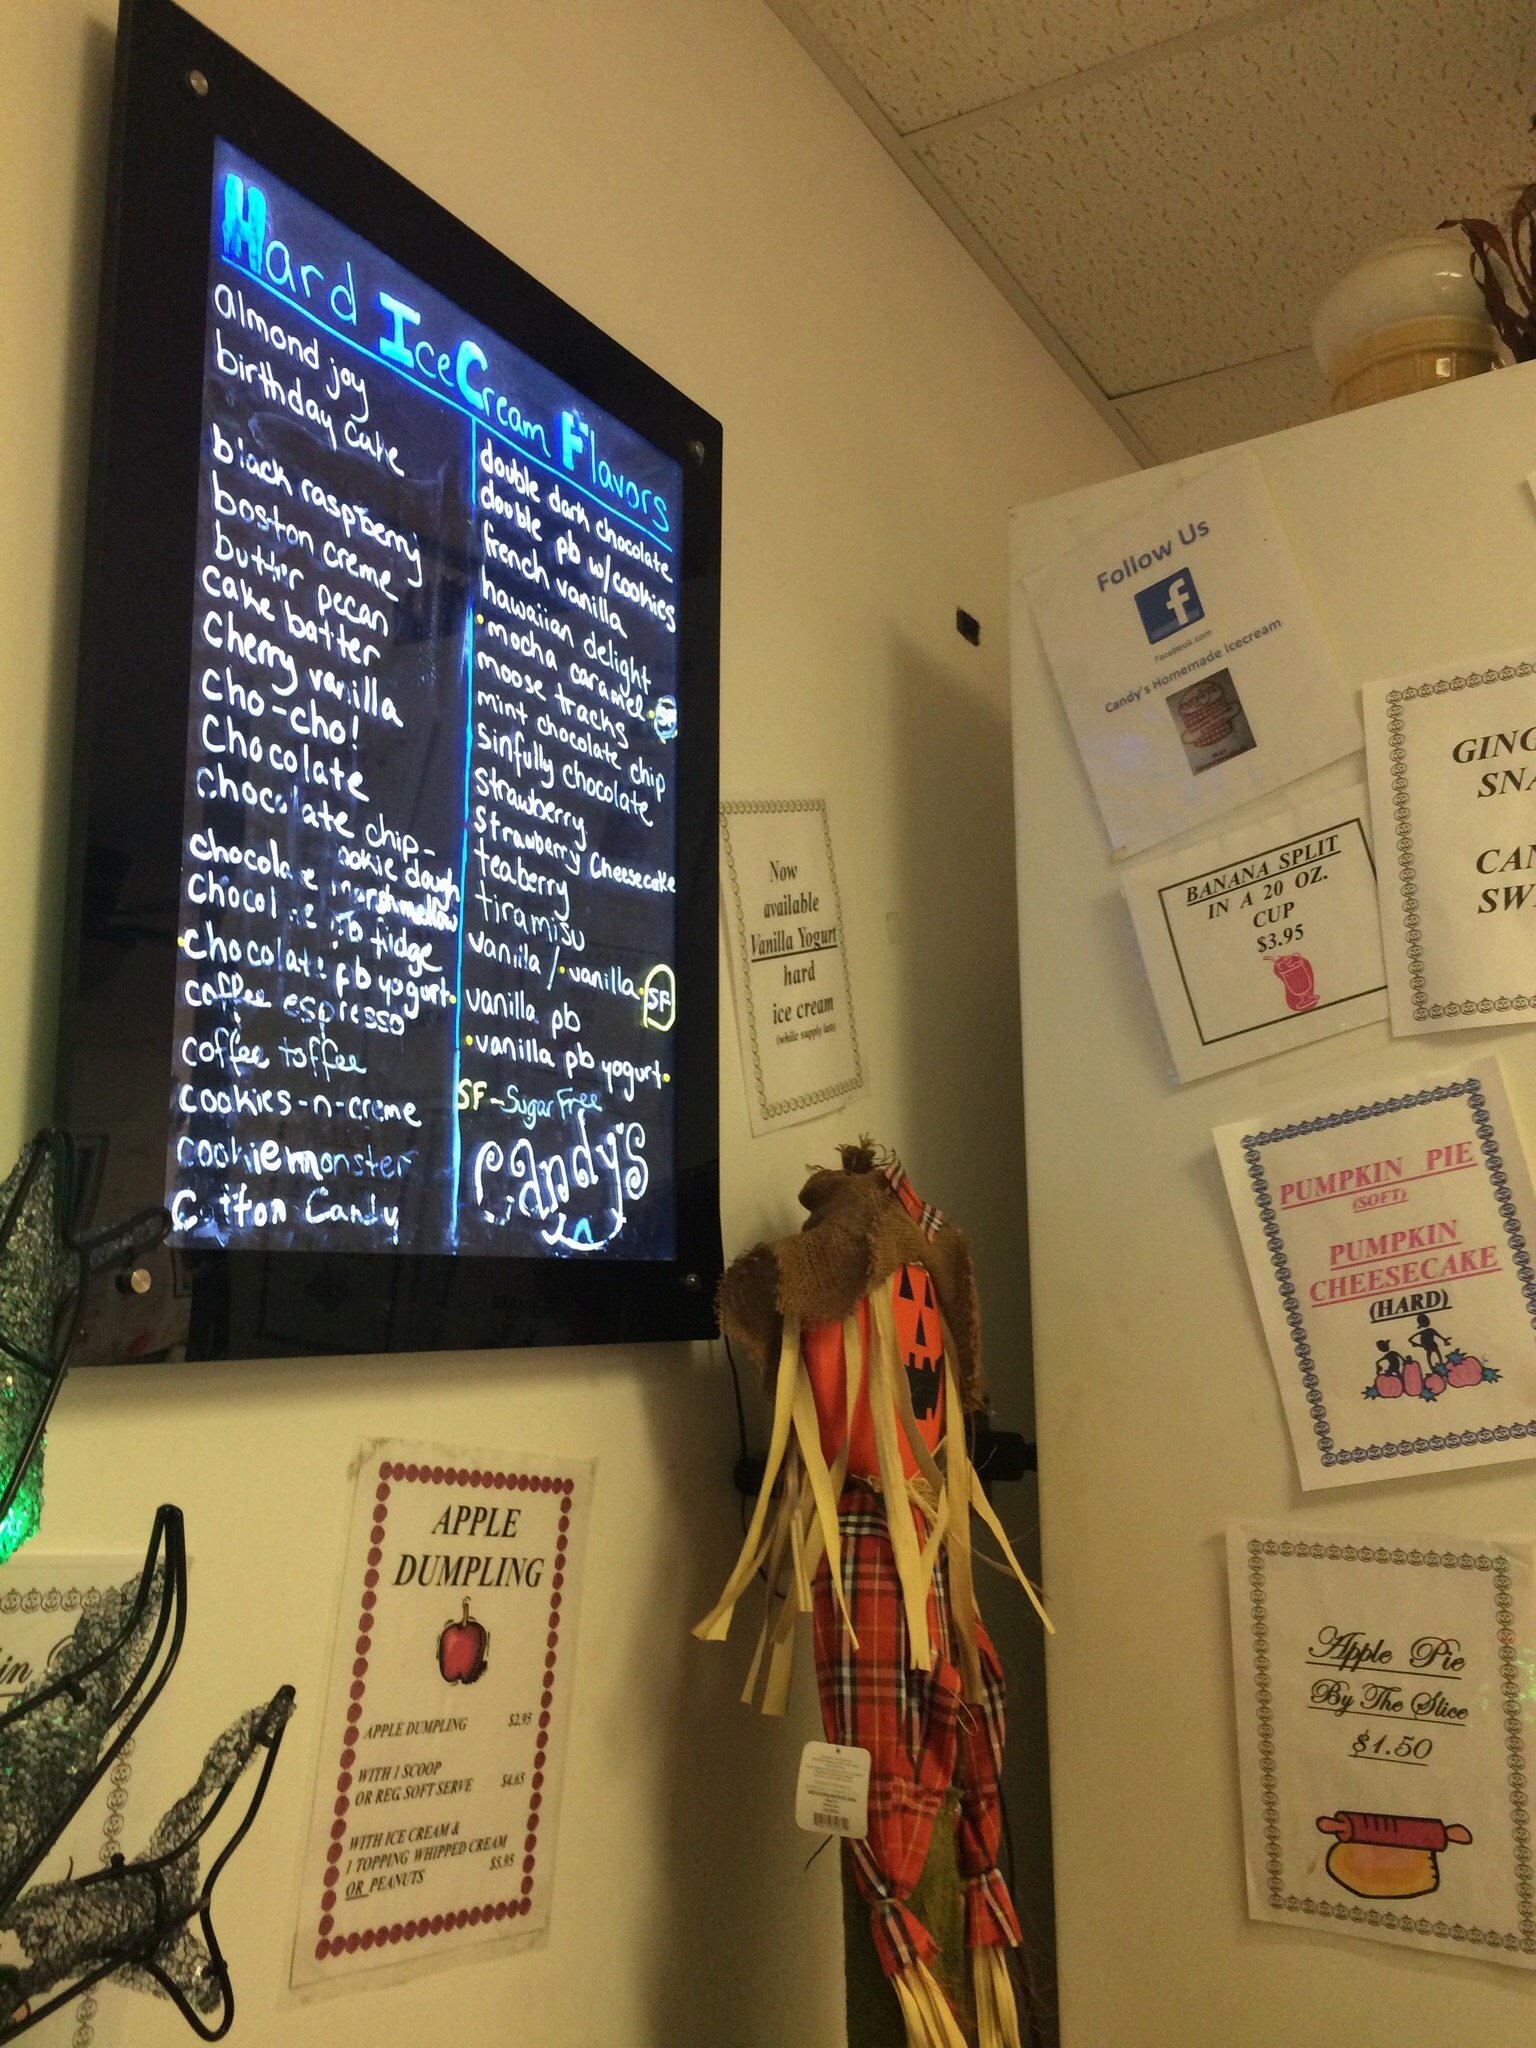 Hard Ice Cream Flavors
almond joy
birthday cake
black raspberry
boston creme
butter pecan
cake batter
cherry vanilla
cho-cho!
Chocolate
chocolate chip-
cookie dough
chocolate marshmellow
chocolate pb fudge
chocolate pb yogurt
coffee espresso
coffee toffee
cookies-n-creme
cookiemonster
Cotton Candy
double dark chocolate
double pb w/cookies
french vanilla
hawaiian delight
mocha caramel SF
moose tracks
mint chocolate chip
sinfully chocolate
strawberry
strawberry cheesecake
teaberry
tiramisu
vanilla / vanilla SF
vanilla pb
vanilla pb yogurt
SF - Sugar Free
Candy's
Now
available
Vanilla Yogurt
hard
ice cream
(while supply lasts)
Follow Us
f
Facebook.com
Candy's Homemade Icecream
BANANA SPLIT
IN A 20 OZ.
CUP
$3.95
GING
SNA
CAN
SW
PUMPKIN PIE
(SOFT)
PUMPKIN
CHEESECAKE
(HARD)
Apple Pie
By The Slice
$1.50
APPLE
DUMPLING
APPLE DUMPLING $2.95
WITH 1 SCOOP
OR REG SOFT SERVE $4.65
WITH ICE CREAM &
1 TOPPING WHIPPED CREAM
OR PEANUTS $5.95
in